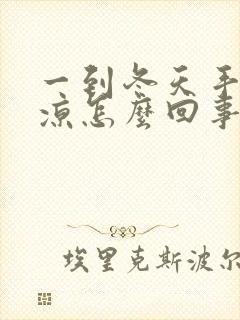 一到冬天手
凉怎麽回事
埃里克斯波尔